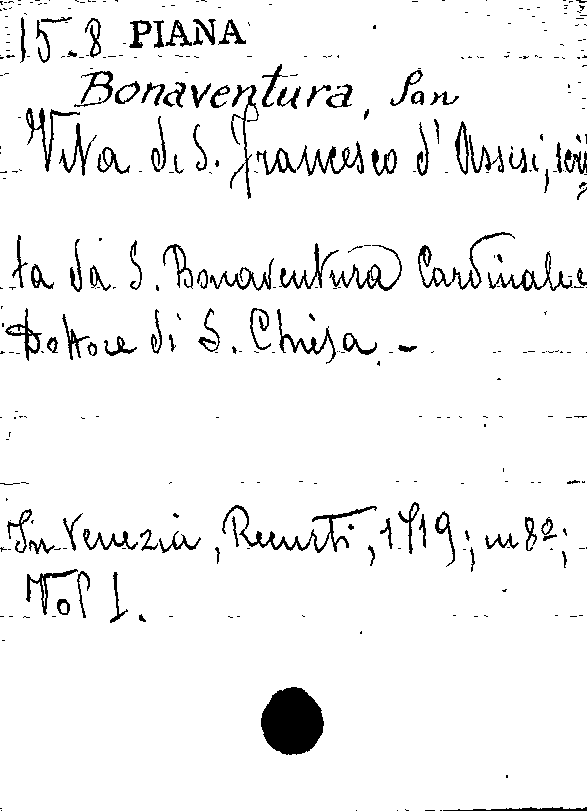 15.8 PIANA
Bonaventura, San
Vita di S. Francesco d'Assisi, scrit
ta da S. Bonaventura Cardinale e
Dottore di S. Chiesa. -
In Venezia, Recurti, 1719; in 8º;
Vol 1.